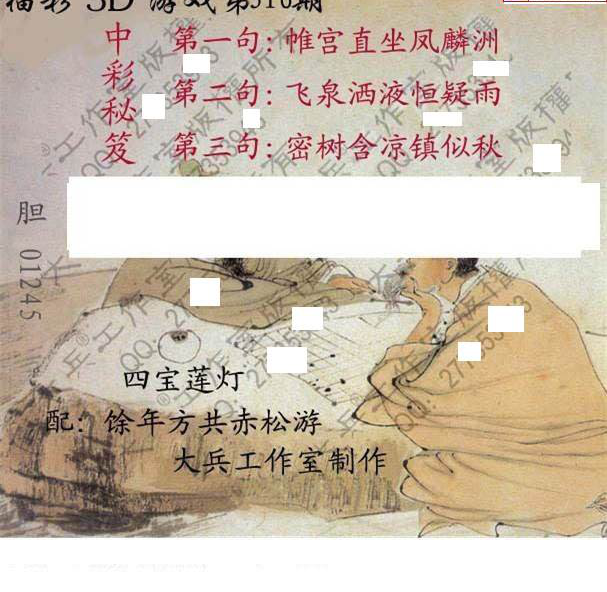 福彩3D游戏第310期
中彩秘笈
第一句:帷宫直坐凤麟洲
第二句:飞泉洒液恒疑雨
第三句:密树含凉镇似秋
胆 01245
四宝莲灯
配:馀年方共赤松游
大兵工作室制作